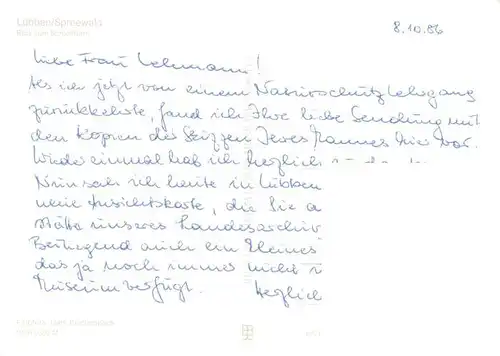 Lübben/Spreewald
8.10.86
Liebe Frau Lehmann!
Als ich jetzt von einem Naturschutzlehrgang
zurückkehrte, fand ich Ihre liebe Sendung mit
den Kopien der Skizzen Ihres Mannes hier vor.
Wieder einmal hab ich herzlich
Nun sah ich heute in Lübben
neue Ansichtskarte, die Sie a
stätte unseres Landesarchiv
Beiliegend auch ein kleines
das ja noch immer nicht
Museum verfügt. Herzlich